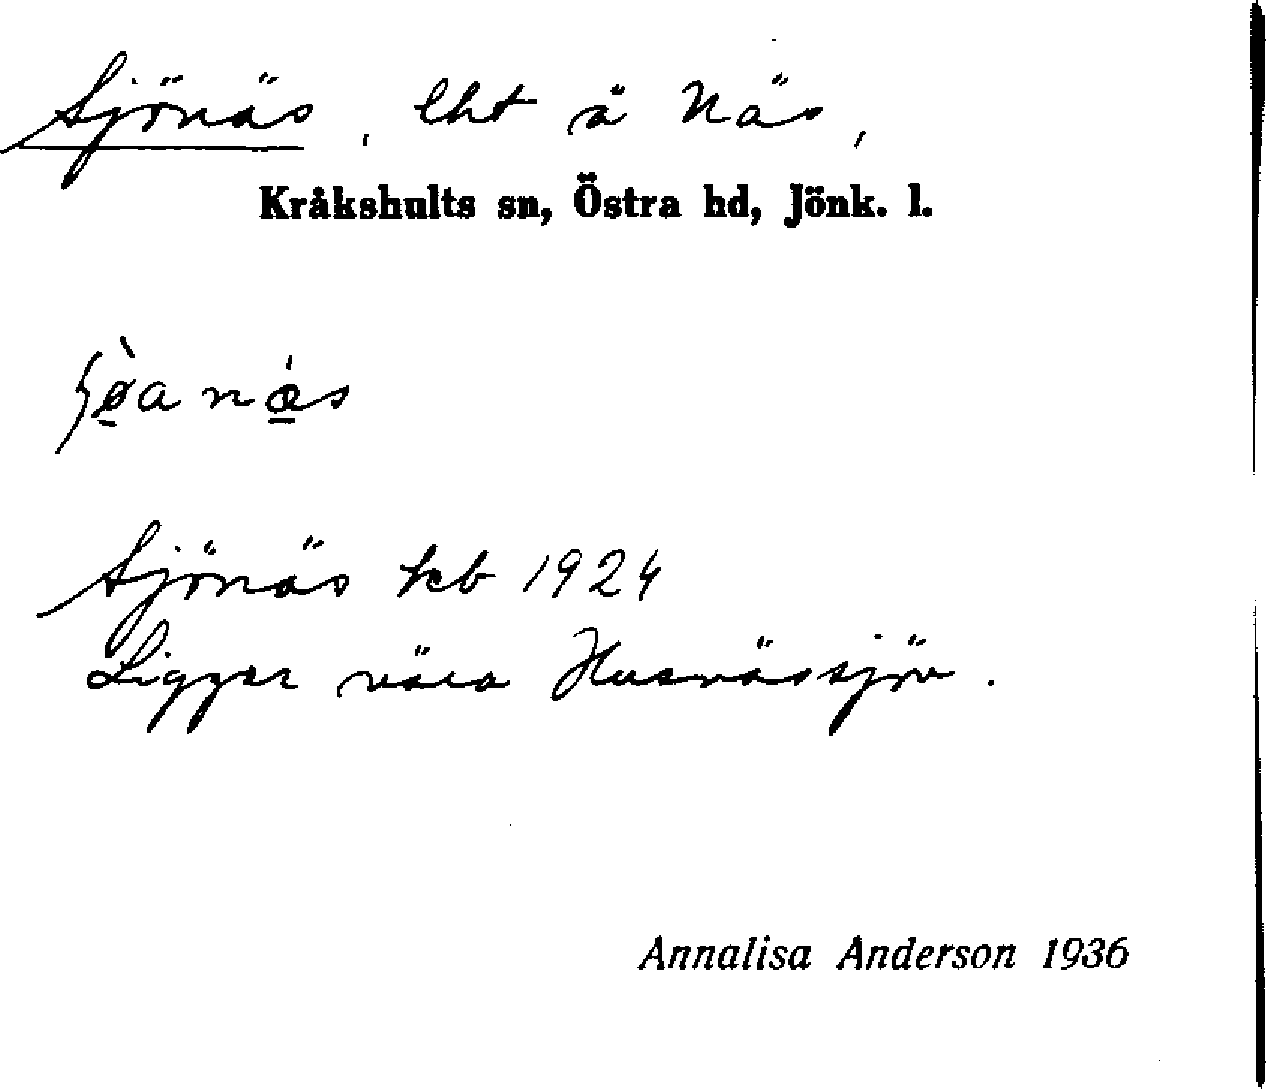 Sjönäs, lht å Näs,
Kråkshults sn, Östra hd, Jönk. l.
ʃø̠̀anǽ̠s
Sjönäs kb 1924
Ligger nära Husnässjön.
Annalisa Anderson 1936